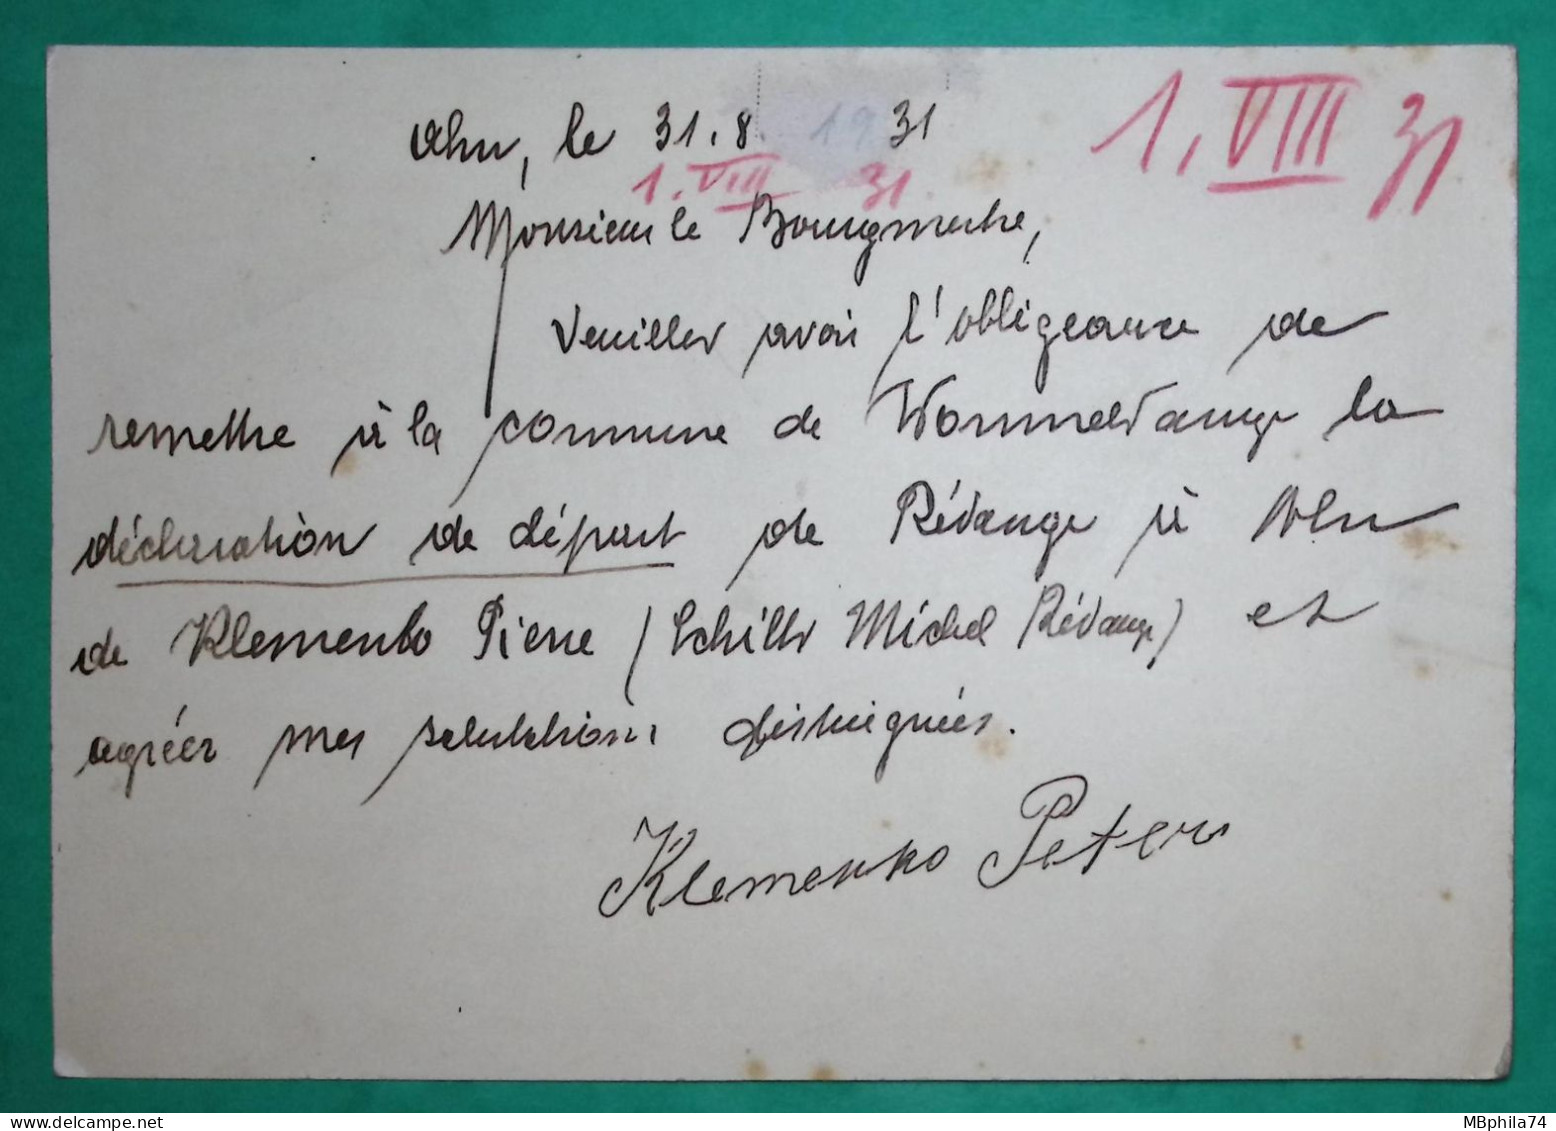 Ahn, le 31.8 1931
1. VIII 31
1. VIII 31
Monsieur le Bourgmestre,
Veuillez avoir l'obligeance de
remettre à la commune de Wormeldange la
déclaration de départ de Rédange à Ahn
de Klemenko Pierre (Schiltz Michel Rédange) et
agréer mes salutations distinguées.
Klemenko Peter
delcampe.net
MBphila74